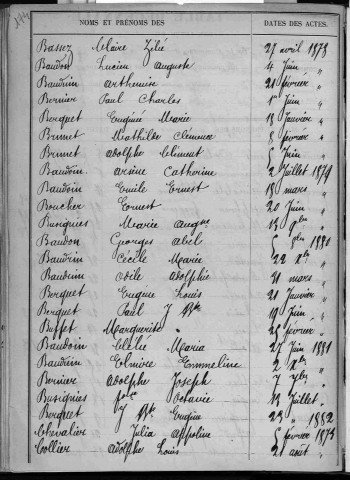 NOMS ET PRÉNOMS DES DATES DES ACTES.
Bassez Claire Zélie 27 avril 1878
Baudon Lucien Auguste 4 Juin "
Baudrin Arthémise 21 février "
Bernier Paul Charles 1er Juin "
Berquet Eugénie Marie 18 Janvier "
Brunet Mathilde Clémence 8 février "
Brunet Adolphe Clément 5 Juin "
Baudoin Arsène Catherine 2 Juillet 1879
Baudoin Emile Ernest 18 mars "
Boucher Ernest 20 Juin "
Busignies Marie Augne 13 "
Baudon Georges Abel 5 1880
Baudrin Cécile Marie 22 "
Baudrin Odile Adolphie 31 mars "
Berquet Eugène Louis 21 Janvier "
Berquet Paul J Bte 19 Juin "
Buffet Marguerite 25 février "
Baudoin Maria 27 Juin 1881
Baudrin Elmire Emmeline 2 "
Bernier Adolphe Joseph 7 7bre "
Busignies Octavie 13 Juillet "
Berquet J Bte Eugène 23 " 1882
Chevalier Julia Appoline 5 février 1873
Collier Adolphe Louis 2 août "